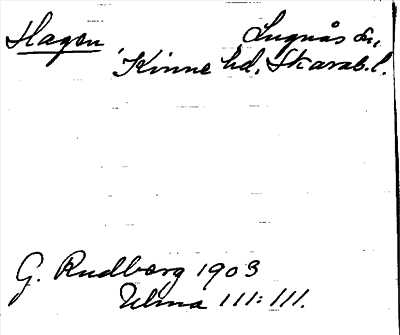 Hagen Lugnås sn,
Kinne hd, Skarab. l.
G. Rudberg 1903
Ulma 111:111.